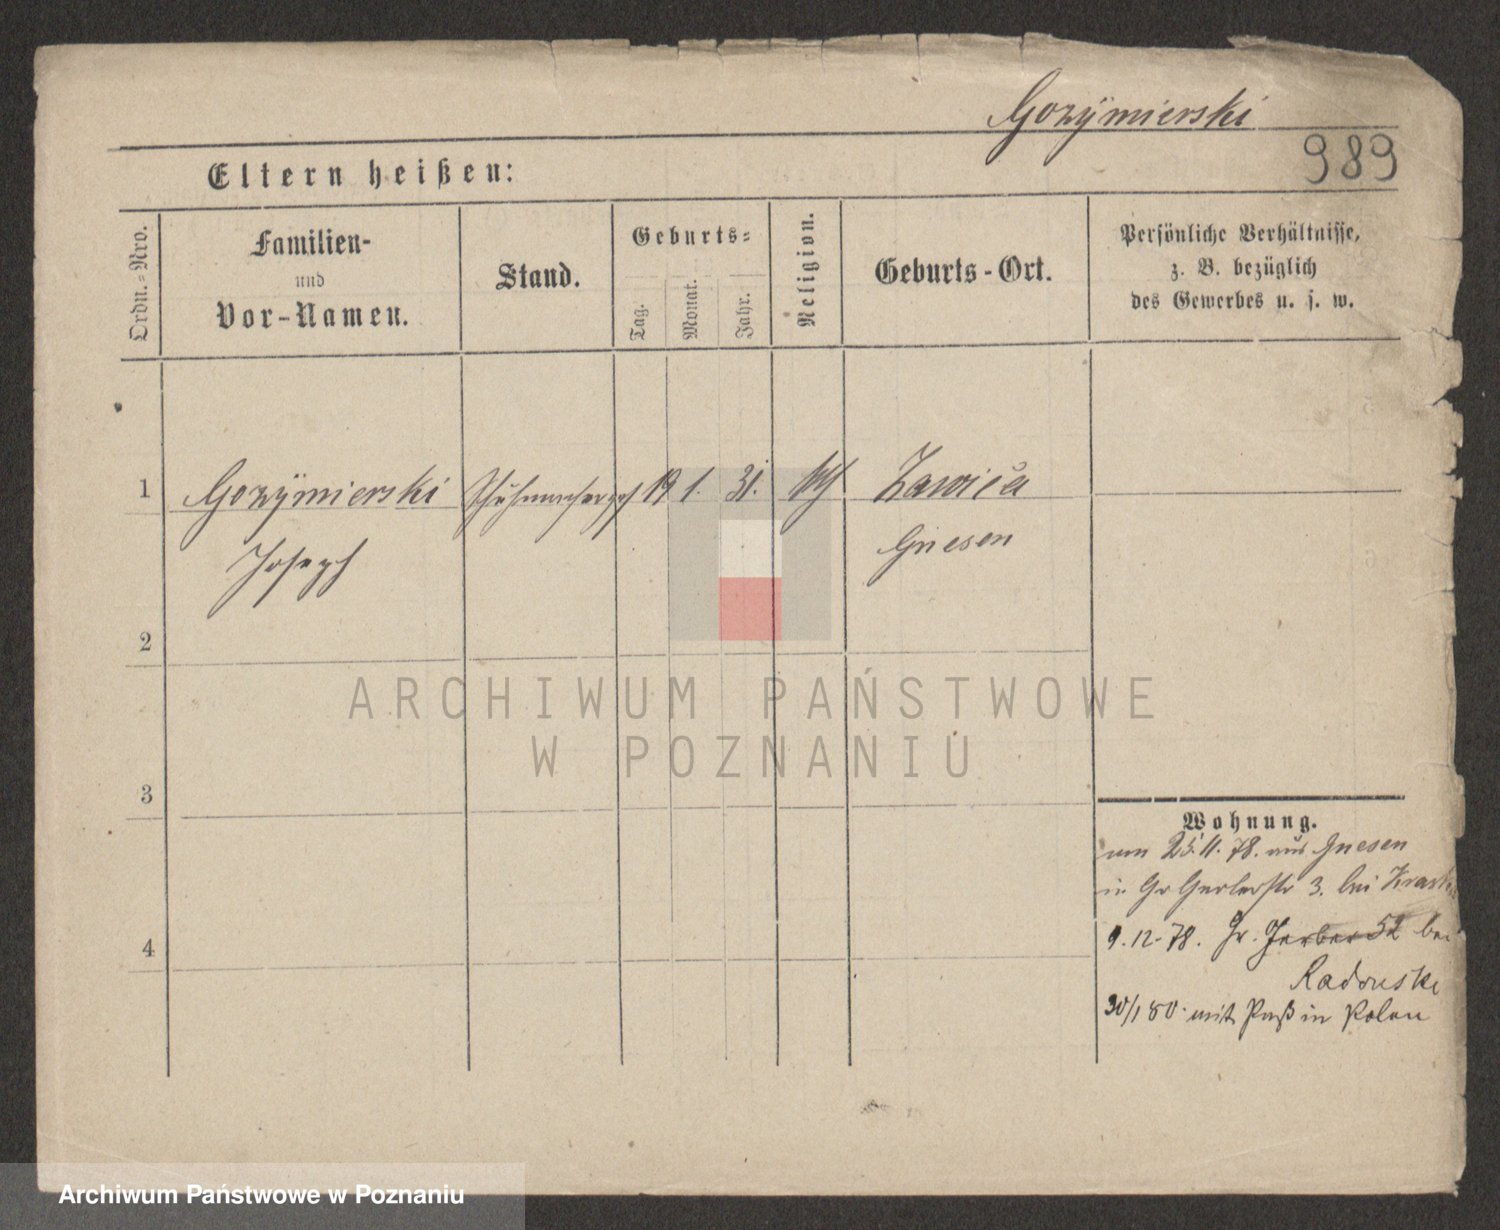 Gozÿmierski
989
Eltern heißen:
Ordn.-Nro.
Familien-
und
Vor-Namen.
Stand.
Geburts-
Tag.
Monat.
Jahr.
Religion.
Geburts-Ort.
Persönliche Verhältnisse,
z. B. bezüglich
des Gewerbes u. s. w.
1 Gozÿmierski 19 1. 31.
Joseph Gnesen
2
3
4
Wohnung.
am 25.11.78. aus Gnesen
in Gr Gerberstr 3. bei
9.12.78. Gr. Gerber 52 bei
Radonski
30/1 80. mit Paß in Polen
ARCHIWUM PAŃSTWOWE
W POZNANIU
Archiwum Państwowe w Poznaniu